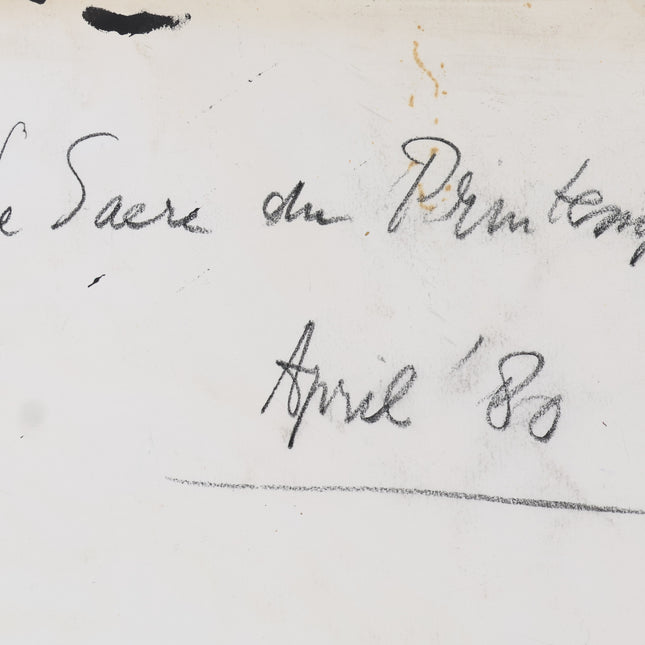 Le Sacre du Printemps
April '80